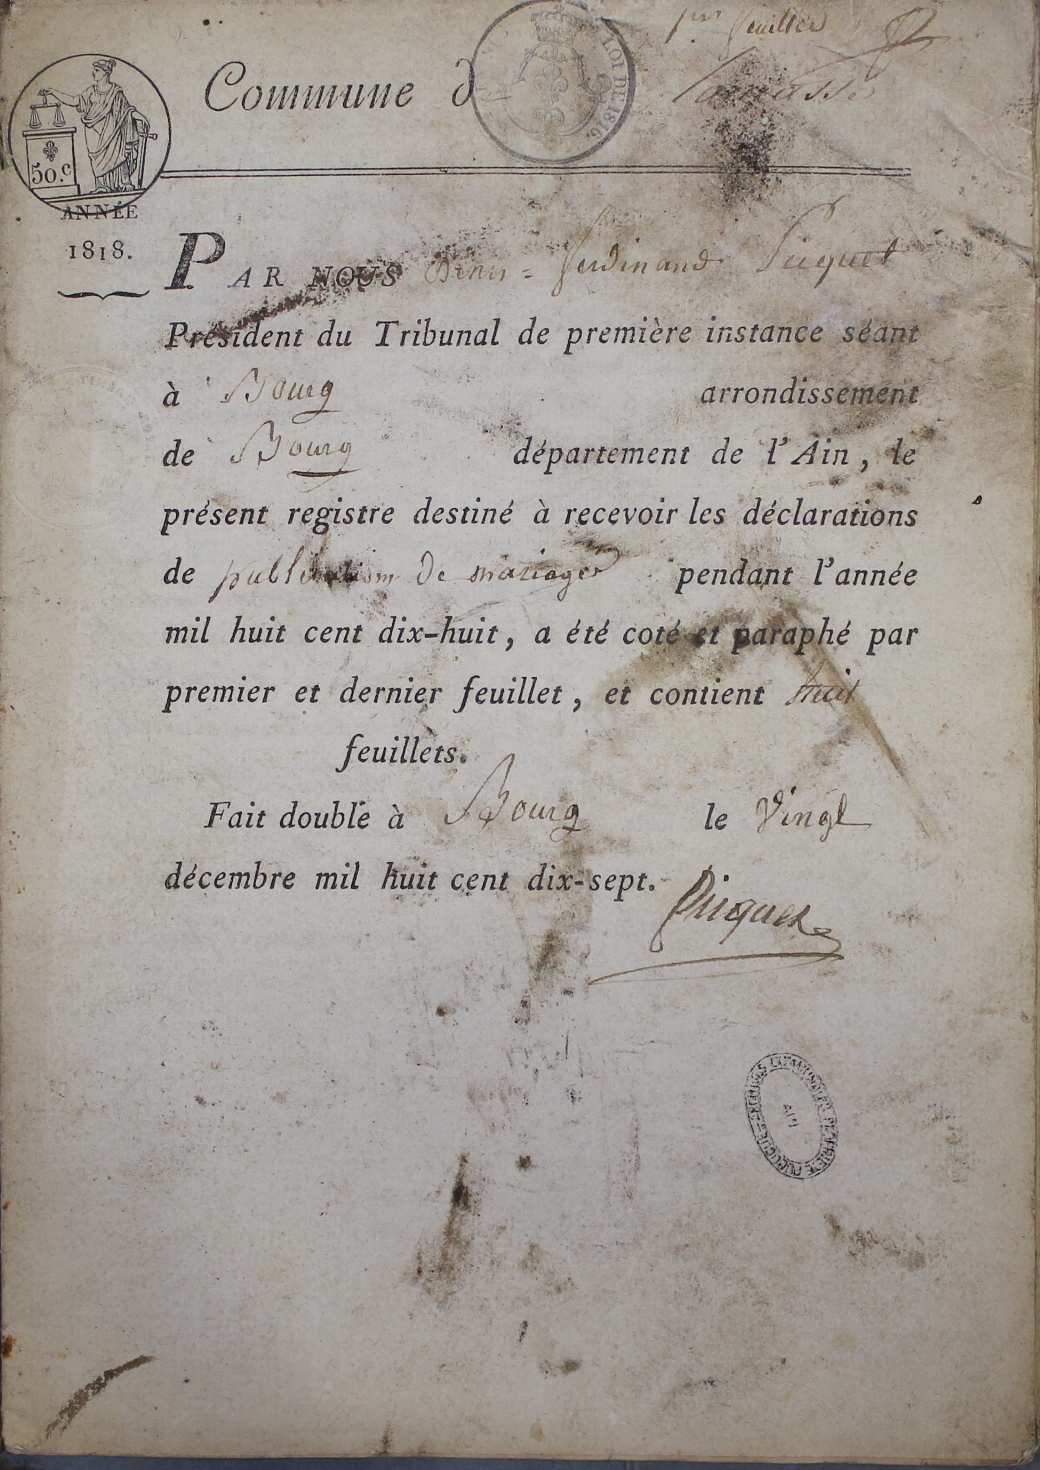 feuillet
Commune d
LOI DU 1816.
50.c
ANNÉE
1818.
PAR NOUS Denis = Ferdinand Piquet
Président du Tribunal de première instance séant
à Bourg arrondissement
de Bourg département de l'Ain, le
présent registre destiné à recevoir les déclarations
de publication de mariages pendant l'année
mil huit cent dix-huit, a été coté et paraphé par
premier et dernier feuillet, et contient huit
feuillets.
Fait double à Bourg le Vingt
décembre mil huit cent dix-sept.
Piquet
AIN